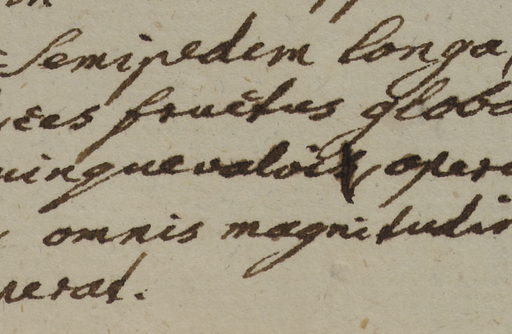 Semipedem longa,
fructus globo
uinquevalvis, oper
omnis magnitudin
nerat.